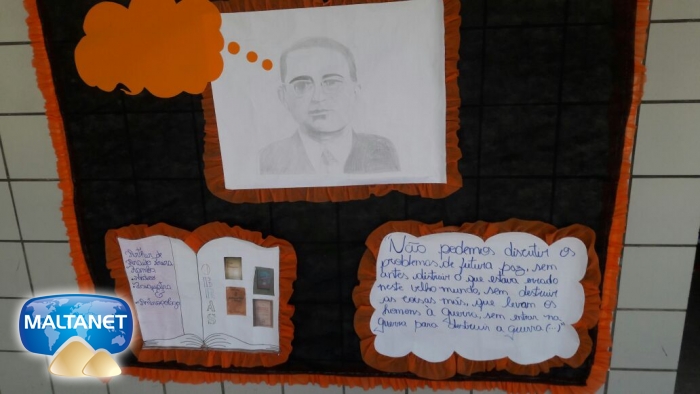 OBRAS
Não podemos discutir os
problemas de futura paz, sem
antes destruir o que estava errado
neste velho mundo, sem destruir
as coisas más, que levam os
homens à guerra, sem entrar na
guerra para destruir a guerra (...)"
MALTANET